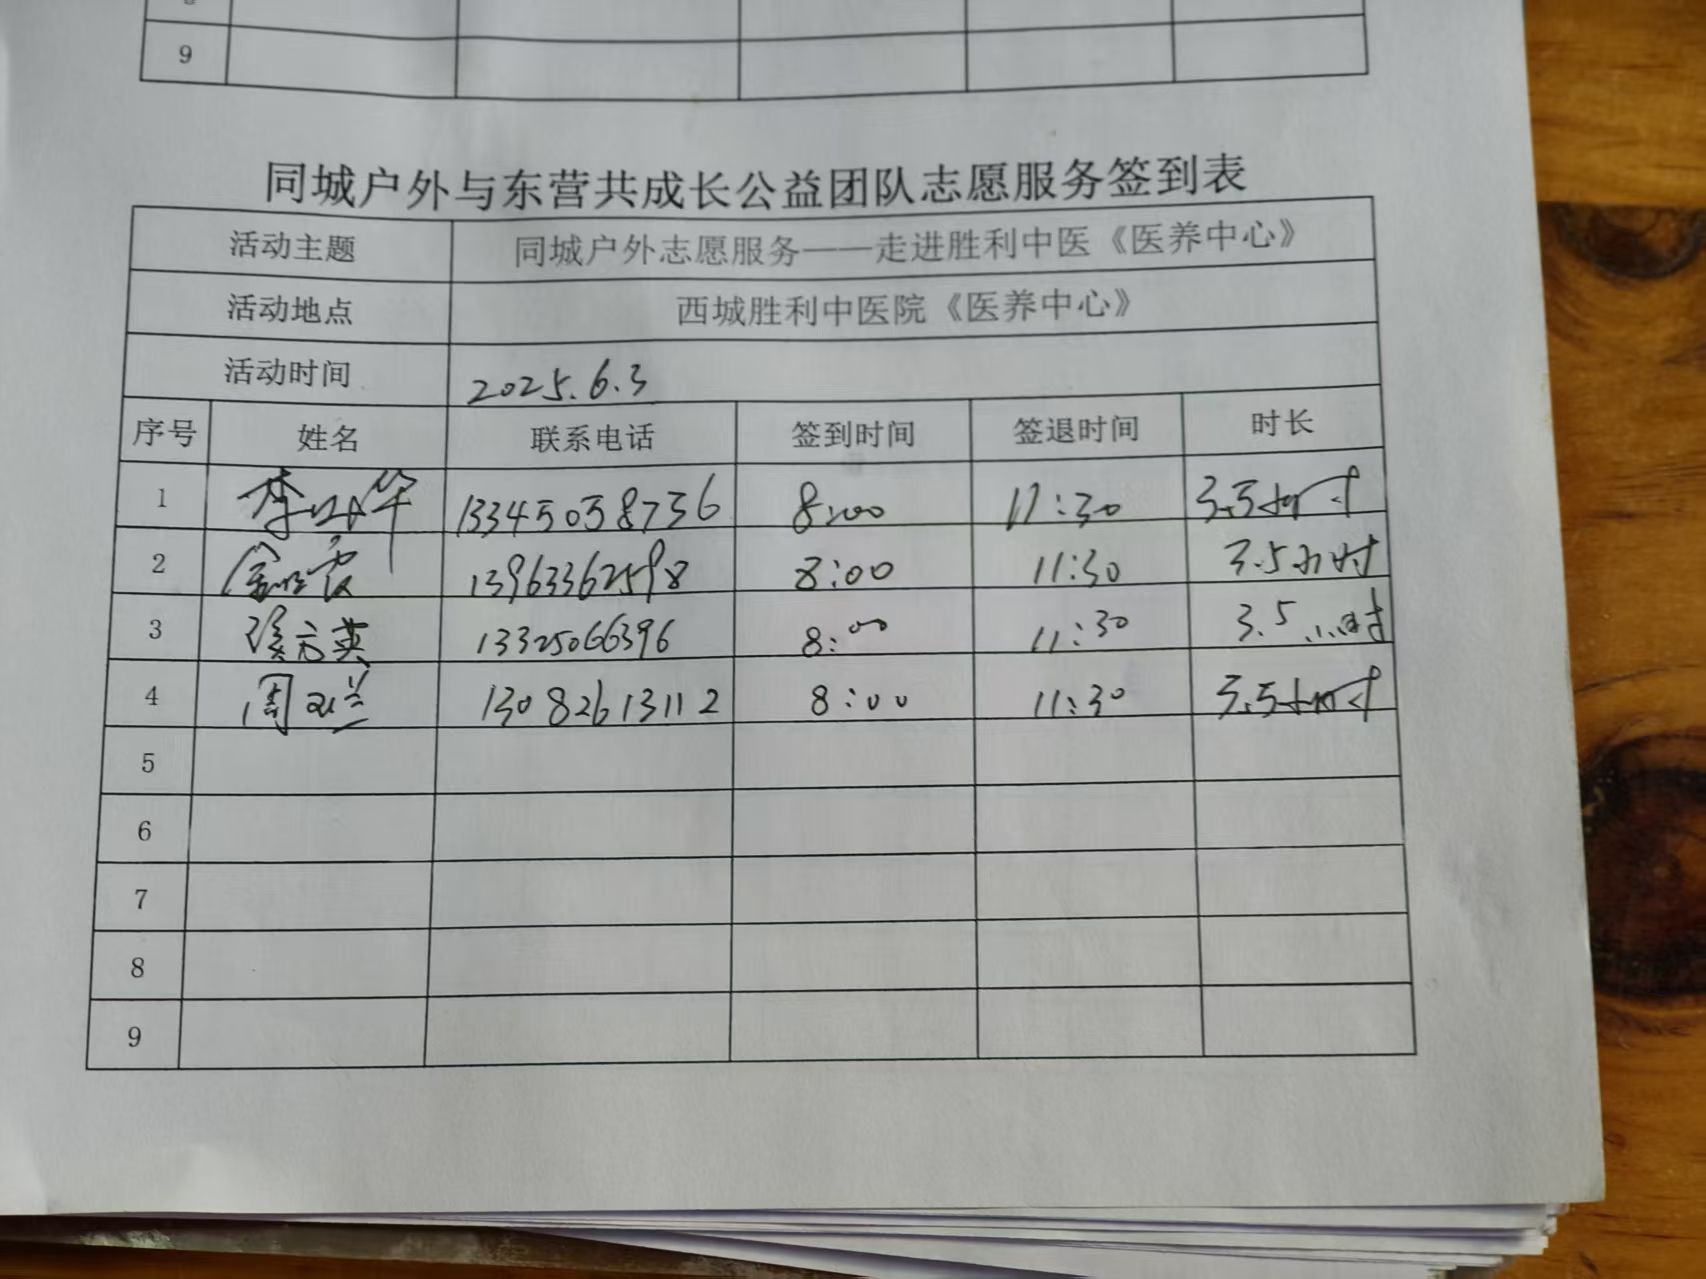 9
同城户外与东营共成长公益团队志愿服务签到表
活动主题 同城户外志愿服务——走进胜利中医《医养中心》
活动地点 西城胜利中医院《医养中心》
活动时间 2025.6.3
序号 姓名 联系电话 签到时间 签退时间 时长
1 李 华 13345058736 8:00 11:30 3.5小时
2 金 霞 13963362598 8:00 11:30 3.5小时
3 英 13325066396 8:00 11:30 3.5小时
4 周 兰 13082613112 8:00 11:30 3.5小时
5
6
7
8
9